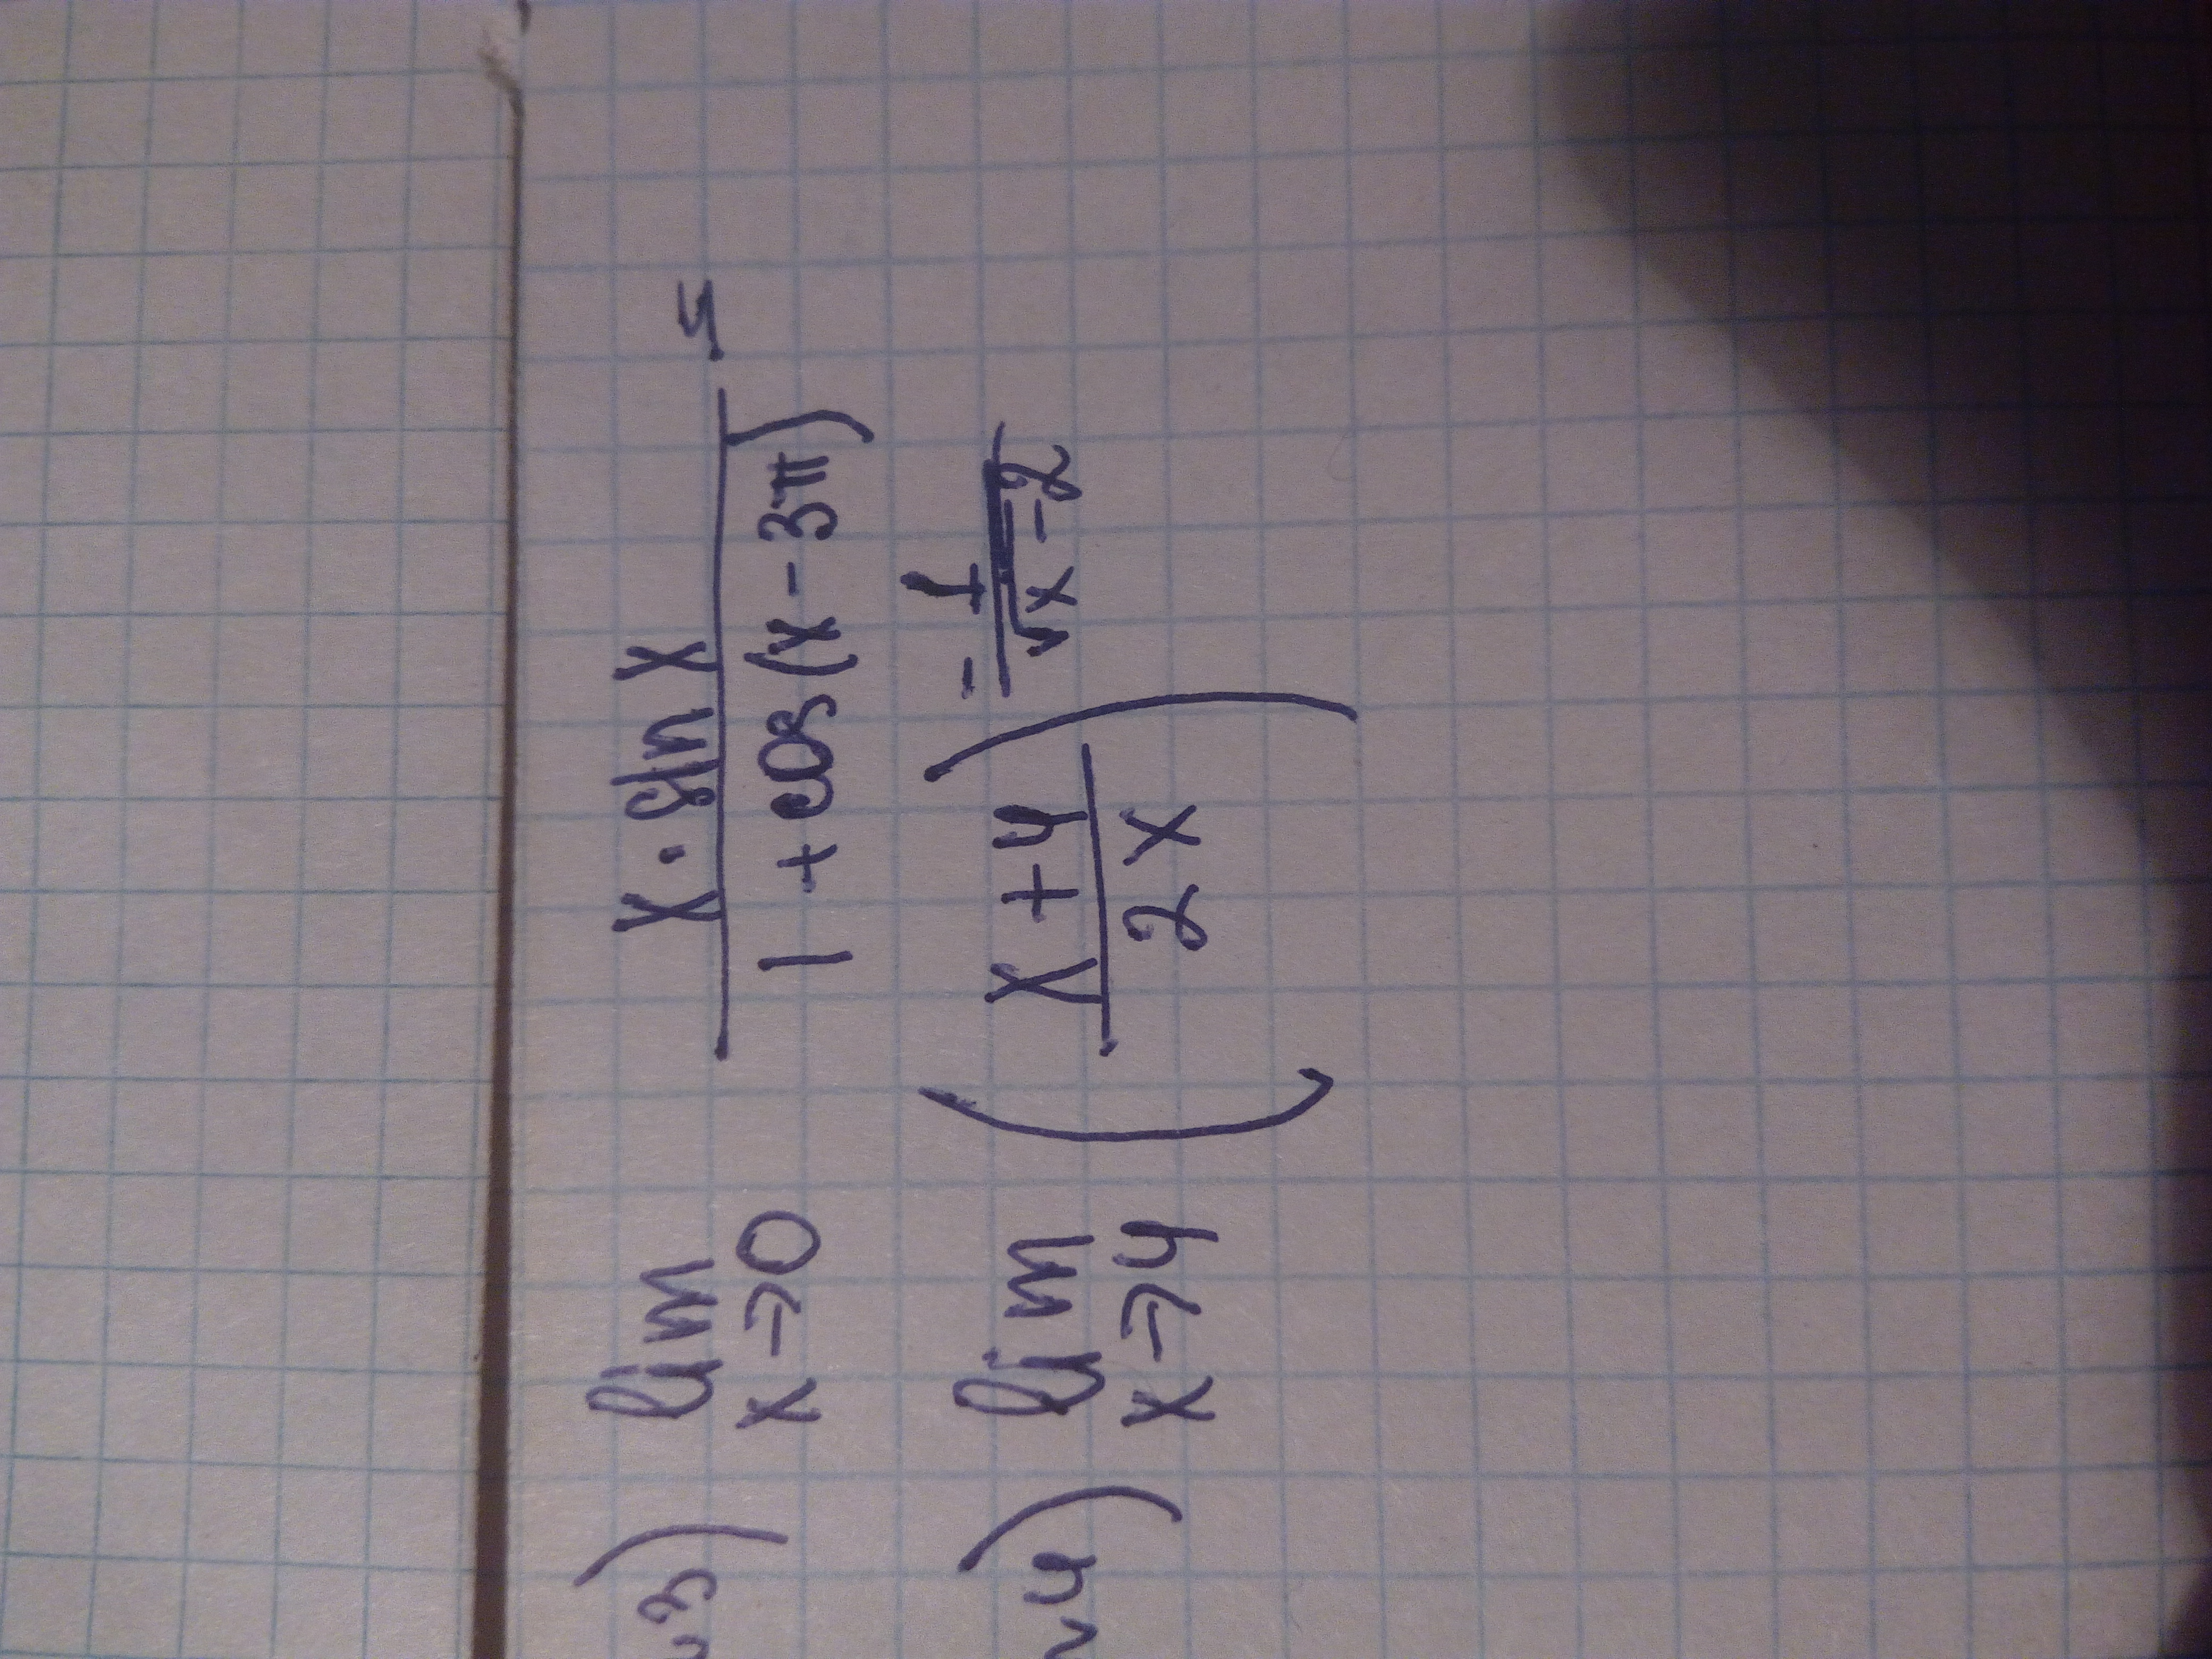 3) lim x→0 x · sin x / 1 + cos(x - 3π) =
4) lim x→4 (x + 4 / 2x)^(- 1 / √x - 2)